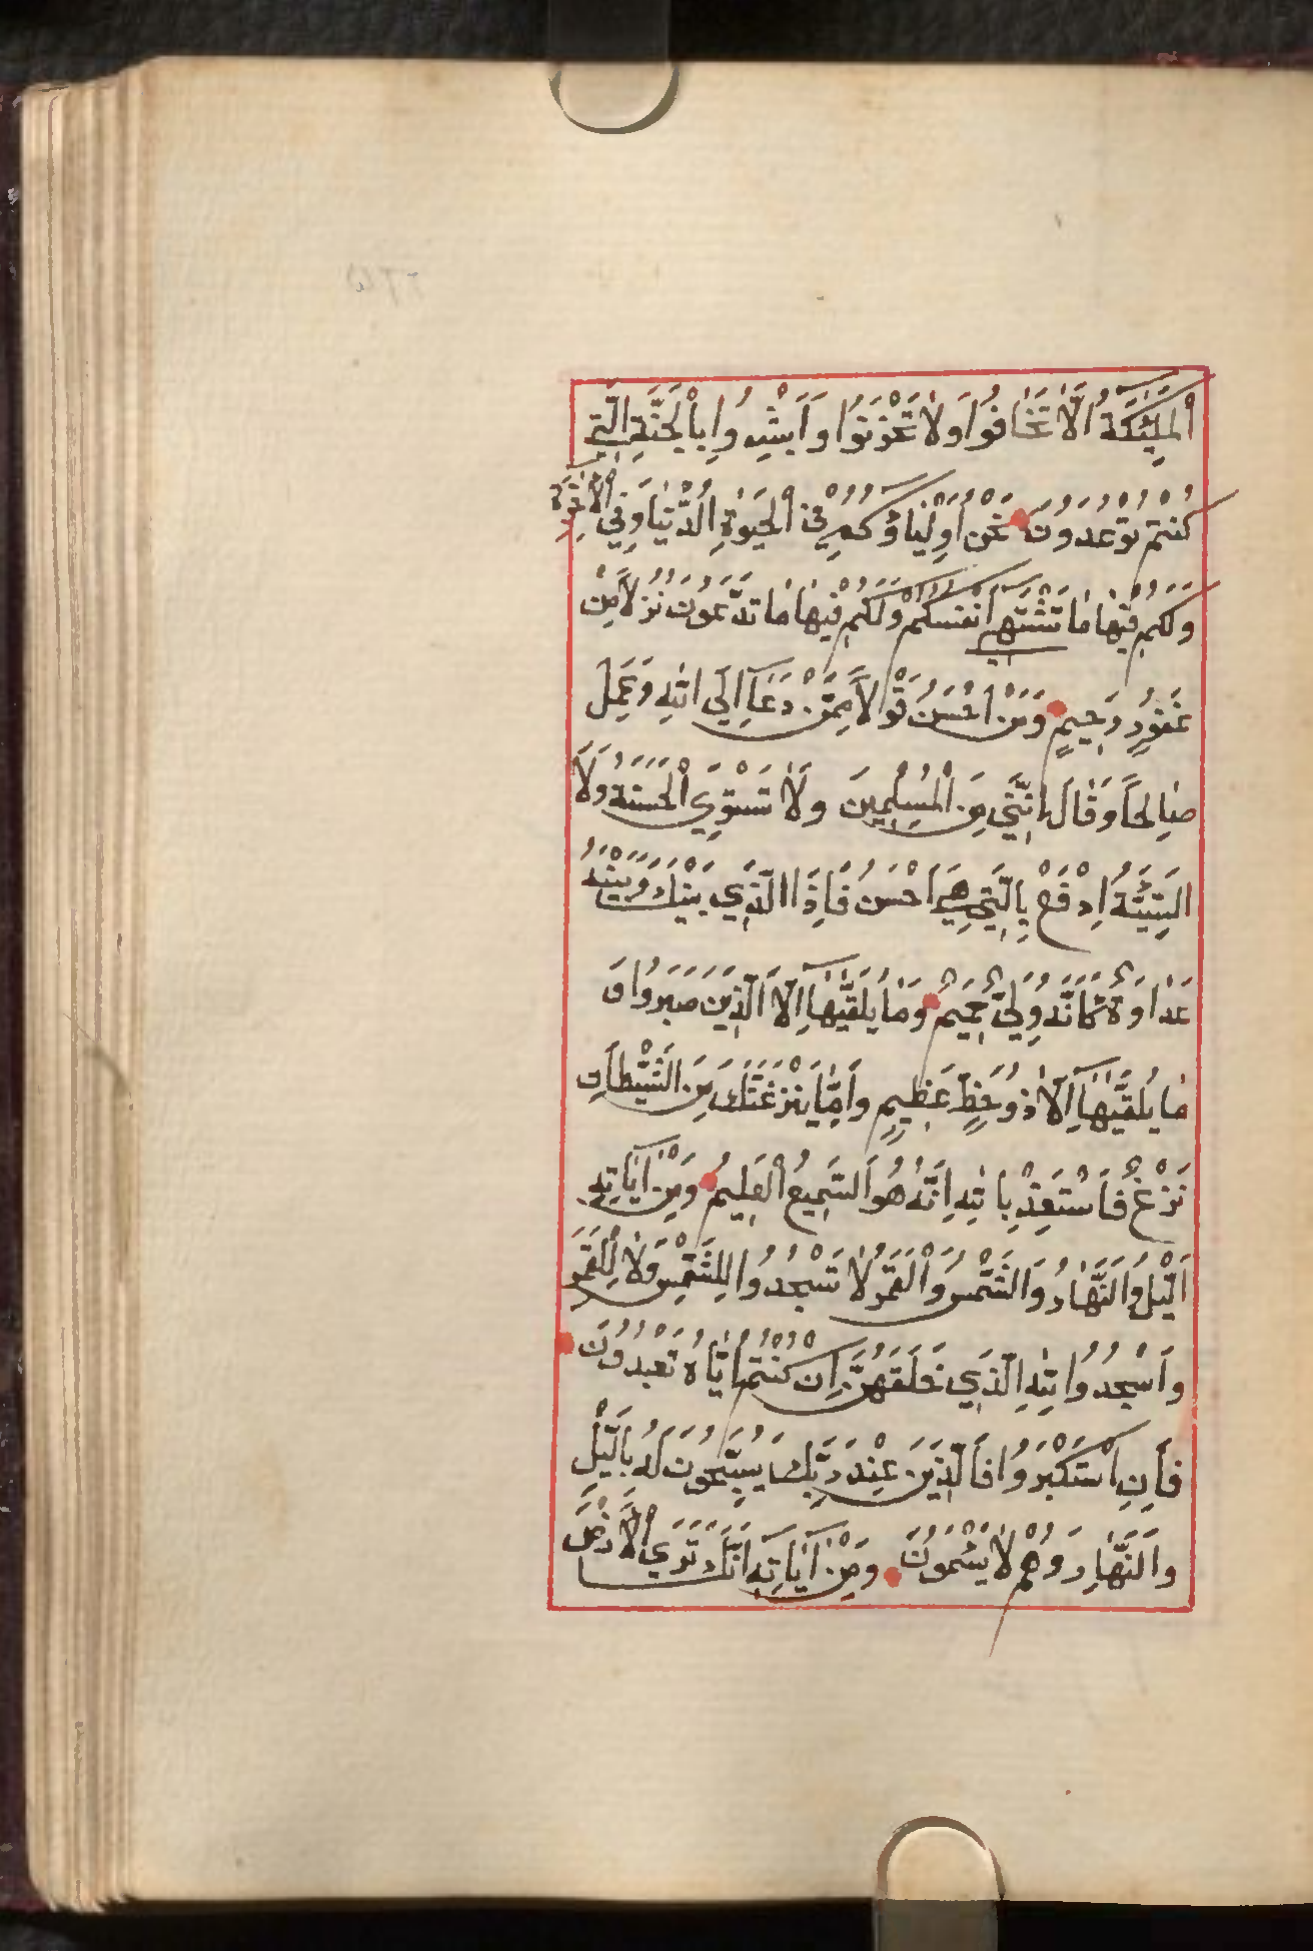 اَلْمَلٰئِكَةُ اَلَّا تَخَافُوا وَلَا تَحْزَنُوا وَاَبْشِرُوا بِالْجَنَّةِ الَّتِي
كُنْتُمْ تُوْعَدُوْنَ نَحْنُ اَوْلِيَاؤُكُمْ فِي الْحَيٰوةِ الدُّنْيَا وَفِي الْاٰخِرَةِ
وَلَكُمْ فِيْهَا مَا تَشْتَهِي اَنْفُسُكُمْ وَلَكُمْ فِيْهَا مَا تَدَّعُوْنَ نُزُلًا مِنْ
غَفُوْرٍ رَحِيْمٍ وَمَنْ اَحْسَنُ قَوْلًا مِمَّنْ دَعَا اِلَى اللهِ وَعَمِلَ
صَالِحًا وَقَالَ اِنَّنِي مِنَ الْمُسْلِمِينَ وَلَا تَسْتَوِي الْحَسَنَةُ وَلَا
السَّيِّئَةُ اِدْفَعْ بِالَّتِي هِيَ اَحْسَنُ فَاِذَا الَّذِي بَيْنَكَ وَبَيْنَهُ
عَدَاوَةٌ كَاَنَّهُ وَلِيٌّ حَمِيْمٌ وَمَا يُلَقّٰيهَا اِلَّا الَّذِيْنَ صَبَرُوا وَ
مَا يُلَقّٰيهَا اِلَّا ذُو حَظٍّ عَظِيْمٍ وَاِمَّا يَنْزَغَنَّكَ مِنَ الشَّيْطَانِ
نَزْغٌ فَاسْتَعِذْ بِاللهِ اِنَّهُ هُوَ السَّمِيْعُ الْعَلِيْمُ وَمِنْ اٰيَاتِهِ
اللَّيْلُ وَالنَّهَارُ وَالشَّمْسُ وَالْقَمَرُ لَا تَسْجُدُوا لِلشَّمْسِ وَلَا لِلْقَمَرِ
وَاسْجُدُوا لِلهِ الَّذِي خَلَقَهُنَّ اِنْ كُنْتُمْ اِيَّاهُ تَعْبُدُوْنَ
فَاِنِ اسْتَكْبَرُوا فَالَّذِيْنَ عِنْدَ رَبِّكَ يُسَبِّحُوْنَ لَهُ بِاللَّيْلِ
وَالنَّهَارِ وَهُمْ لَا يَسْئَمُوْنَ وَمِنْ اٰيَاتِهِ اَنَّكَ تَرَي الْاَرْضَ